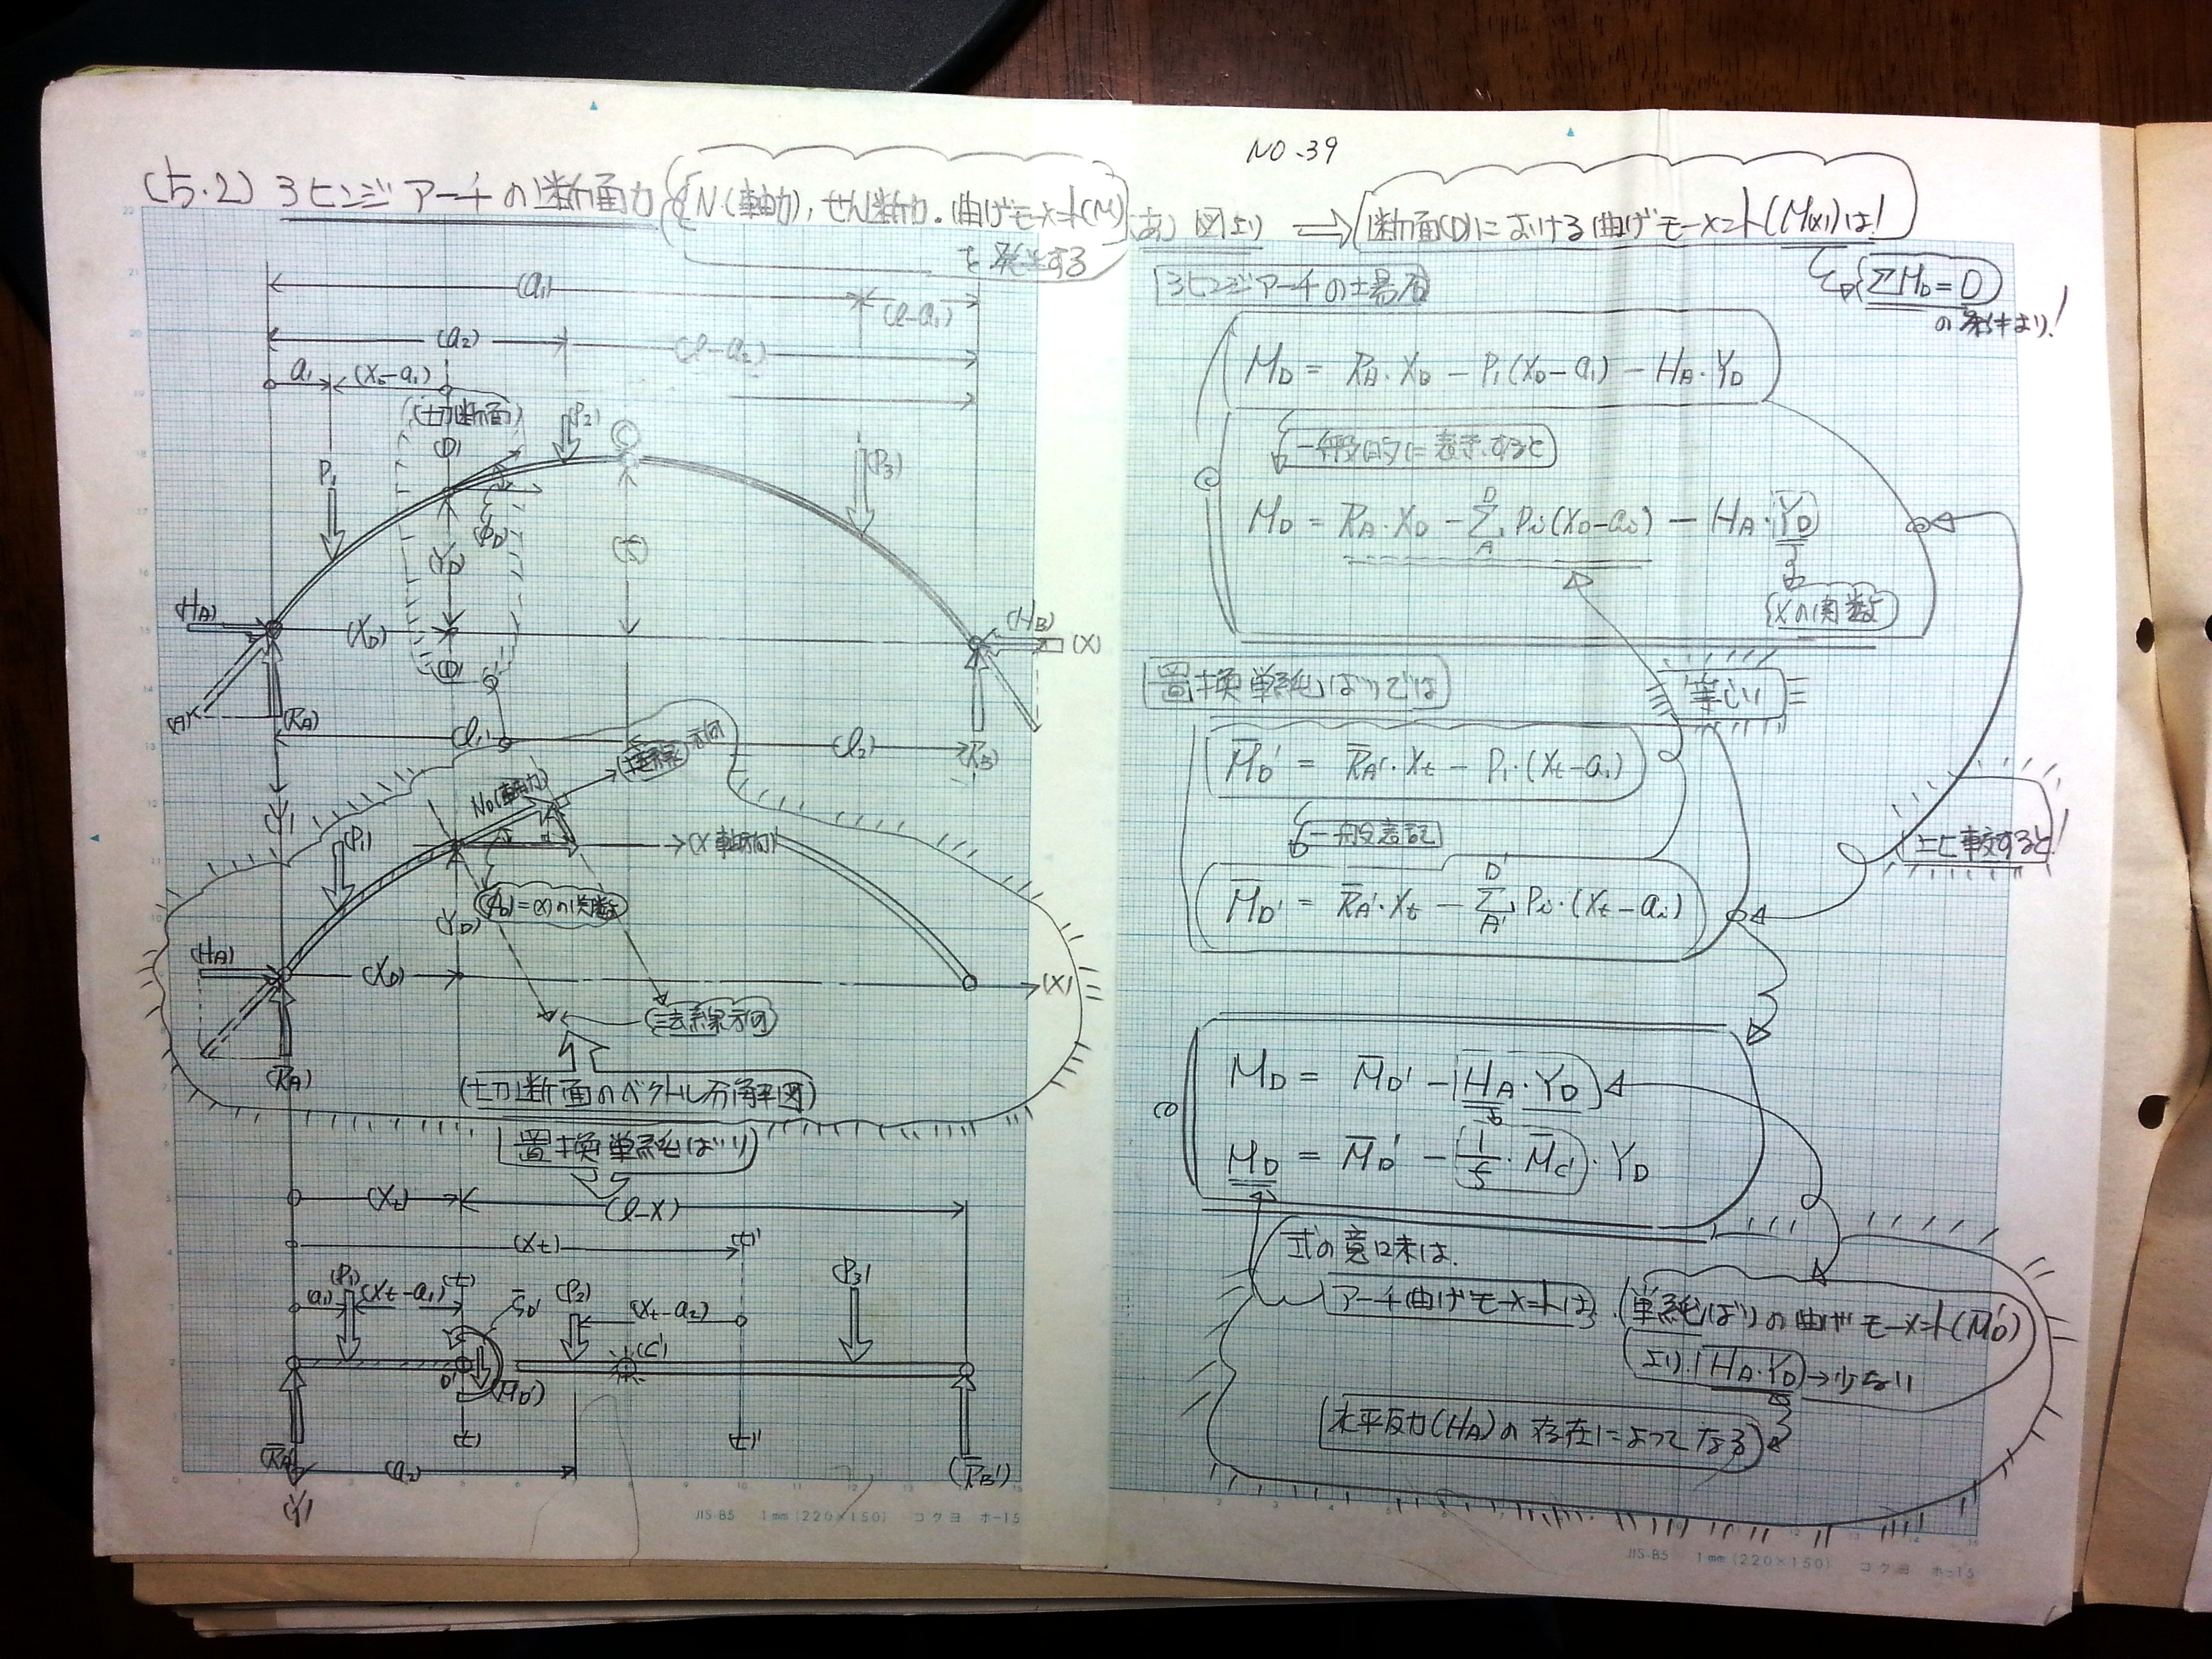 NO.39
(5.2) 3ヒンジアーチの断面力 {N(軸力), せん断力, 曲げモーメント(M)
を発生する
図より ⇒ 断面(D)における曲げモーメント(M(x))は!
ΣM_D=0
の条件より!
(a₁)
(l-a₁)
(a₂)
(l-a₂)
a₁
(X_D-a₁)
(切断面)
(D)
(P₂)
P₁
(P₃)
(φ_D)
(Y_D)
(f)
(H_A)
(X_D)
(H_B)
(X)
(D)
(A)
(R_A)
(l₁)
(l₂)
(R_B)
(Y)
接線方向
N_D(軸力)
(P₁)
(X軸方向)
(φ_D)=(x)の関数
(Y_D)
(H_A)
(X_D)
(X)
法線方向
(R_A)
(切断面のベクトル分解図)
置換単純ばり
(X_t)
(l-X)
(X_t)
(t)'
(P₁)
(t)
(a₁)
(X_t-a₁)
(P₂)
(X_t-a₂)
(P₃)
(C')
D'
(M̄_D')
(t)
(t)'
(R̄_A')
(a₂)
(R̄_B')
(Y)
JIS-B5 1mm(220×150) コクヨ ホ-15
3ヒンジアーチの場合
M_D = R_A・X_D - P₁(X_D-a₁) - H_A・Y_D
一般的に表示すると
M_D = R_A・X_D - Σ_A^D Pi(X_D-ai) - H_A・Y_D
Xの関数
置換単純ばりでは
等しい
M̄_D' = R̄_A'・X_t - P₁・(X_t-a₁)
一般表記
比較すると!
M̄_D' = R̄_A'・X_t - Σ_A'^D' Pi・(X_t-ai)
M_D = M̄_D' - H_A・Y_D
M_D = M̄_D' - (1/f・M̄_C')・Y_D
式の意味は.
アーチ曲げモーメントは, (単純ばり)の曲げモーメント(M̄_D')
より, (H_A・Y_D)→少ない
水平反力(H_A)の存在によってなる
JIS-B5 1mm(220×150) コクヨ ホ-15